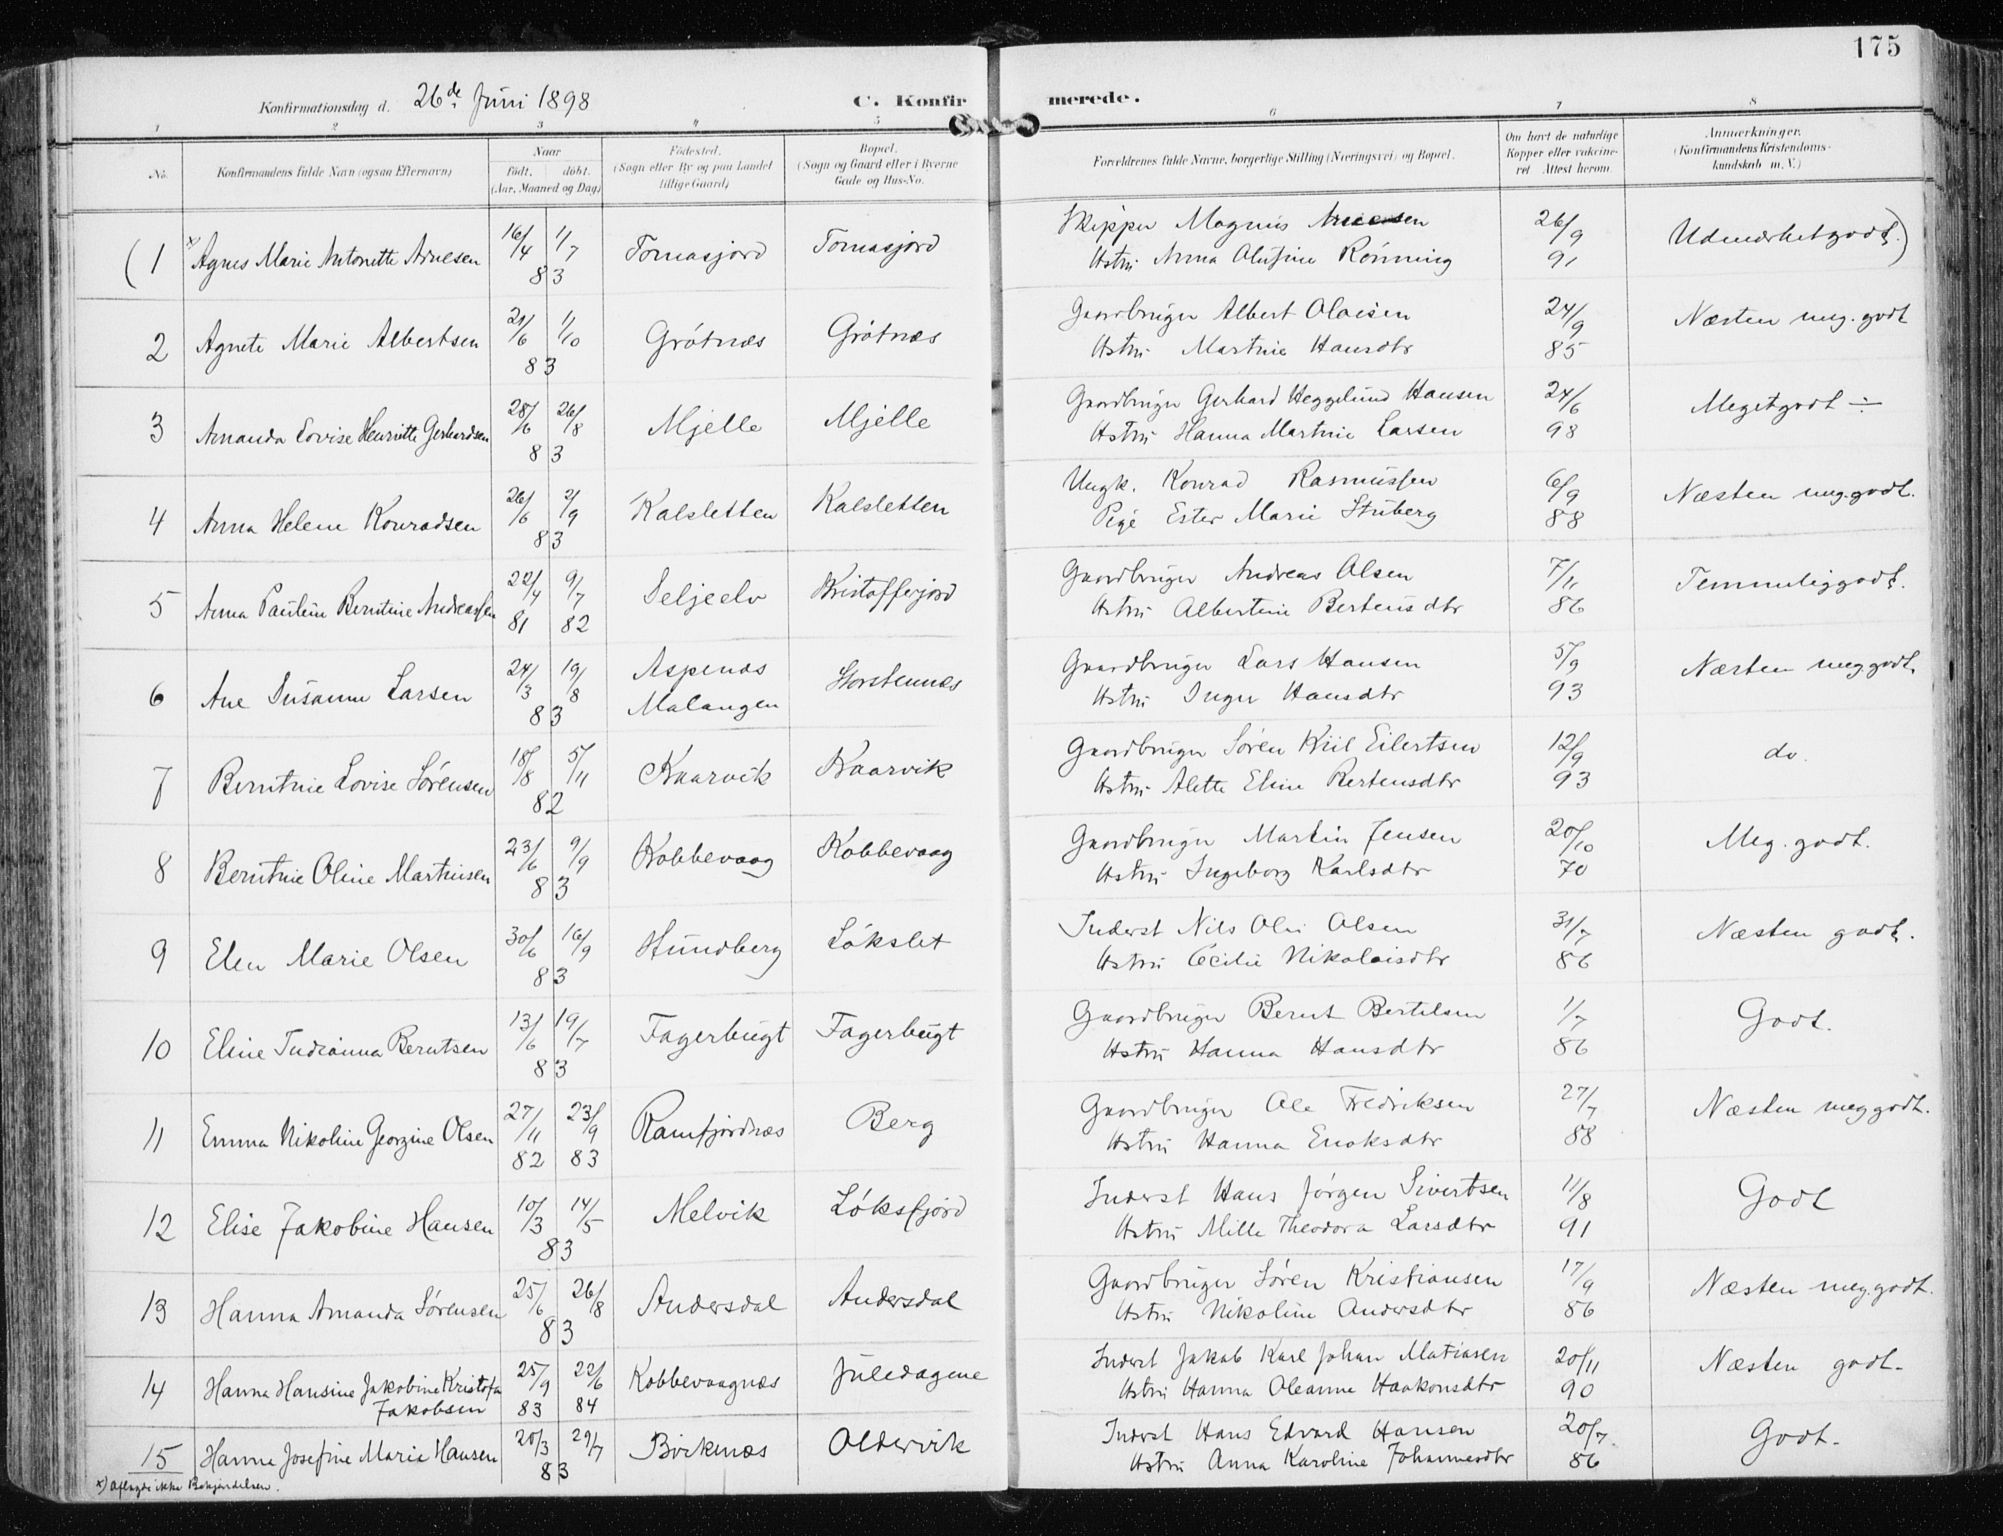 175
Konfirmationsdag d. 26de Juni 1898
C. Konfirmerede.
1 2 3 4 5 6 7 8
No.
Konfirmandens fulde Navn (ogsaa Efternavn)
Naar
født. døbt.
(Aar, Maaned og Dag)
Fødested.
(Sogn eller By og paa Landet
tillige Gaard)
Bopæl.
(Sogn og Gaard eller i Byerne
Gade og Hus-No.
Forældrenes fulde Navne, borgerlige Stilling (Næringsvei) og Bopæl.
Om havt de naturlige
Kopper eller vaccine-
ret. Attest herom.
Anmærkninger.
(Konfirmandens Kristendoms-
kundskab m. V.)
(1 x) Agnes Marie Antonette Arnesen 16/4 1/7 Tomasjord Tomasjord Skipper Magnus Arnesen 26/9 Udmærket godt.)
83 Hstru Anna Olufine Rønning 91
2 Agnete Marie Albertsen 21/6 1/10 Grøtnæs Grøtnæs Gaardbruger Albert Olaisen 24/9 Næsten meg. godt
83 Hstru Martine Hansdtr 85
3 Amanda Lovise Henriette Gerhardsen 28/6 26/8 Mjelle Mjelle Gaardbruger Gerhard Heggelund Hansen 24/6 Meget godt ÷
83 Hstru Hanna Martine Larsen 98
4 Anna Helene Konradsen 26/6 2/9 Kalsletten Kalsletten Ungk. Konrad Rasmussen 6/9 Næsten meg. godt.
83 Pige Ester Marie Stuberg 88
5 Anna Pauline Berntine Andreassen 22/4 9/7 Seljeelv Kristofferjord Gaardbruger Andreas Olsen 7/11 Temmelig godt.
81 82 Hstru Albertine Berteusdtr 86
6 Ane Susanne Larsen 24/3 19/8 Aspenæs Storstennæs Gaardbruger Lars Hansen 5/9 Næsten meg godt.
83 Malangen Hstru Inger Hansdtr 93
7 Berntine Lovise Sørensen 18/8 5/11 Kaarvik Kaarvik Gaardbruger Søren Kiil Eilertsen 12/9 do.
82 Hstru Alette Eline Berteusdtr 93
8 Berntine Oline Martinsen 23/6 9/9 Kobbevaag Kobbevaag Gaardbruger Martin Jensen 20/10 Meg. godt.
83 Hstru Ingeborg Karlsdtr 70
9 Elen Marie Olsen 30/6 16/9 Hundberg Løkslet Inderst Nils Olai Olsen 31/7 Næsten godt.
83 Hstru Cecilie Nikolaisdtr 86
10 Eline Indianna Berntsen 13/6 19/7 Fagerbugt Fagerbugt Gaardbruger Bernt Bertelsen 1/7 Godt.
83 Hstru Hanna Hansdtr 86
11 Emma Nikoline Georgine Olsen 27/11 23/9 Ramfjordnæs Berg Gaardbruger Ole Fredriksen 27/7 Næsten meg godt.
82 83 Hstru Hanna Enoksdtr 88
12 Elise Jakobine Hansen 10/3 14/5 Melvik Løksfjord Inderst Hans Jørgen Sivertsen 11/8 Godt
83 Hstru Mille Theodora Larsdtr 91
13 Hanna Amanda Sørensen 25/6 26/8 Andersdal Andersdal Gaardbruger Søren Kristiansen 17/9 Næsten meg. godt.
83 Hstru Nikoline Andersdtr 86
14 Hanna Hansine Jakobine Kristofa 25/9 22/6 Kobbevaagnæs Juledagene Inderst Jakob Karl Johan Matiasen 20/11 Næsten godt.
Jakobsen 83 84 Hstru Hanna Oleanne Haakonsdtr 90
15 Hanna Josefine Maria Hansen 20/3 29/7 Birkenæs Oldervik Inderst Hans Edvard Hansen 20/7. Godt.
83 Hstru Anna Karoline Johannesdtr 86
x) Aflagde ikke Bekjendelsen.